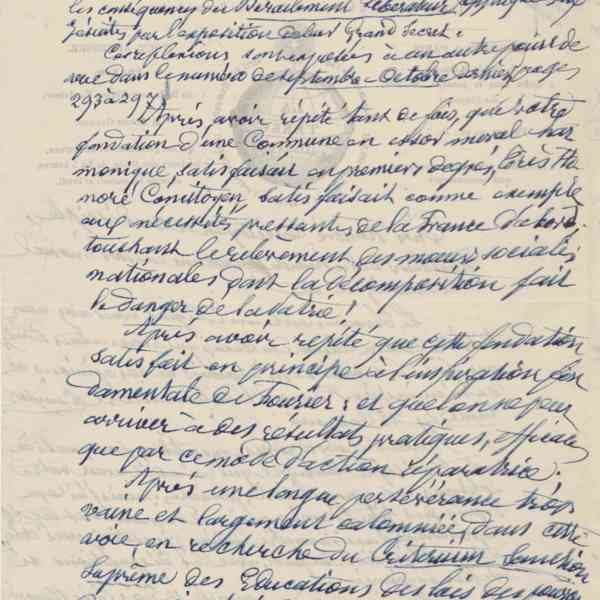 les conséquences du Versaillement
jésuites par l'exposition de leur Grand Secret.
Ces réflexions sont exposées à un autre point de
vue dans le numéro de Septembre-Octobre dernier, pages
293 à 297.
Après avoir répété tant de fois, que votre
fondation d'une Commune en essor moral har
monique, satisfaisait en premiers degrés, très Ho
noré Concitoyen, satisfaisait comme exemple
aux nécessités pressantes de la France d'abord,
touchant le relèvement des mœurs sociales
nationales dont la décomposition fait
le danger de la Patrie!
Après avoir répété que cette fondation
satisfait en principe à l'inspiration fon
damentale de Fourier; et que l'on ne peut
arriver à des résultats pratiques, efficaces
que par ce mode d'action séparatrice;
Après une longue persévérance trop
vaine et largement calomniée, dans cette
voie, en recherche du Criterium
Suprême des Educations des lois des